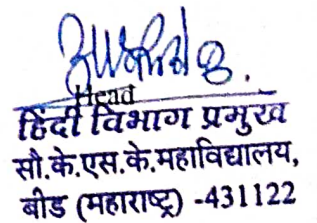 Head
हिंदी विभाग प्रमुख
सौ.के.एस.के.महाविद्यालय,
बीड (महाराष्ट्र) -431122